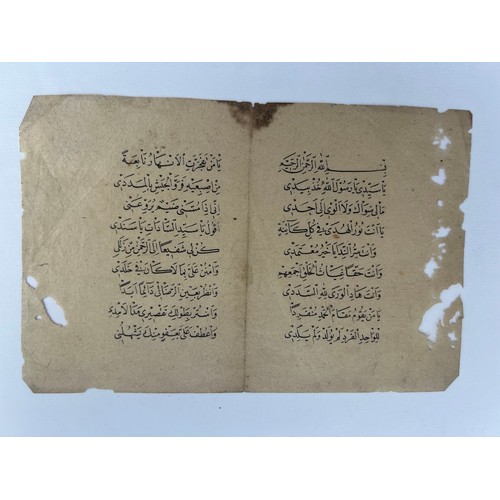 بسم الله الرحمن الرحيم
يا سيدي يا رسول الله خذ بيدي
مالي سواك ولا الوي الى احدي
يا انت نور الهدى في كل كائنة
وانت سر الندا يا خير معتمدي
وانت حقا غياث الخلق اجمعهم
وانت هاد الورى لله
يا من يقوم مقام الحمد منفردا
للواحد الفرد لم يولد ولم يلدي
يا من تفجرت الانهار نابعة
من اصبعيه فروى الجيش بالمددي
اني اذا مسني ضيم يروعني
اقول يا سيد السادات يا سندي
كن لي شفيعا الى الرحمن من زللي
وامنن علي بما لا كان في خلدي
وانظر بعين الرضا لي دائما ابدا
واستر بطولك تقصيري مدا الامدي
واعطف علي بعفو منك يشملني